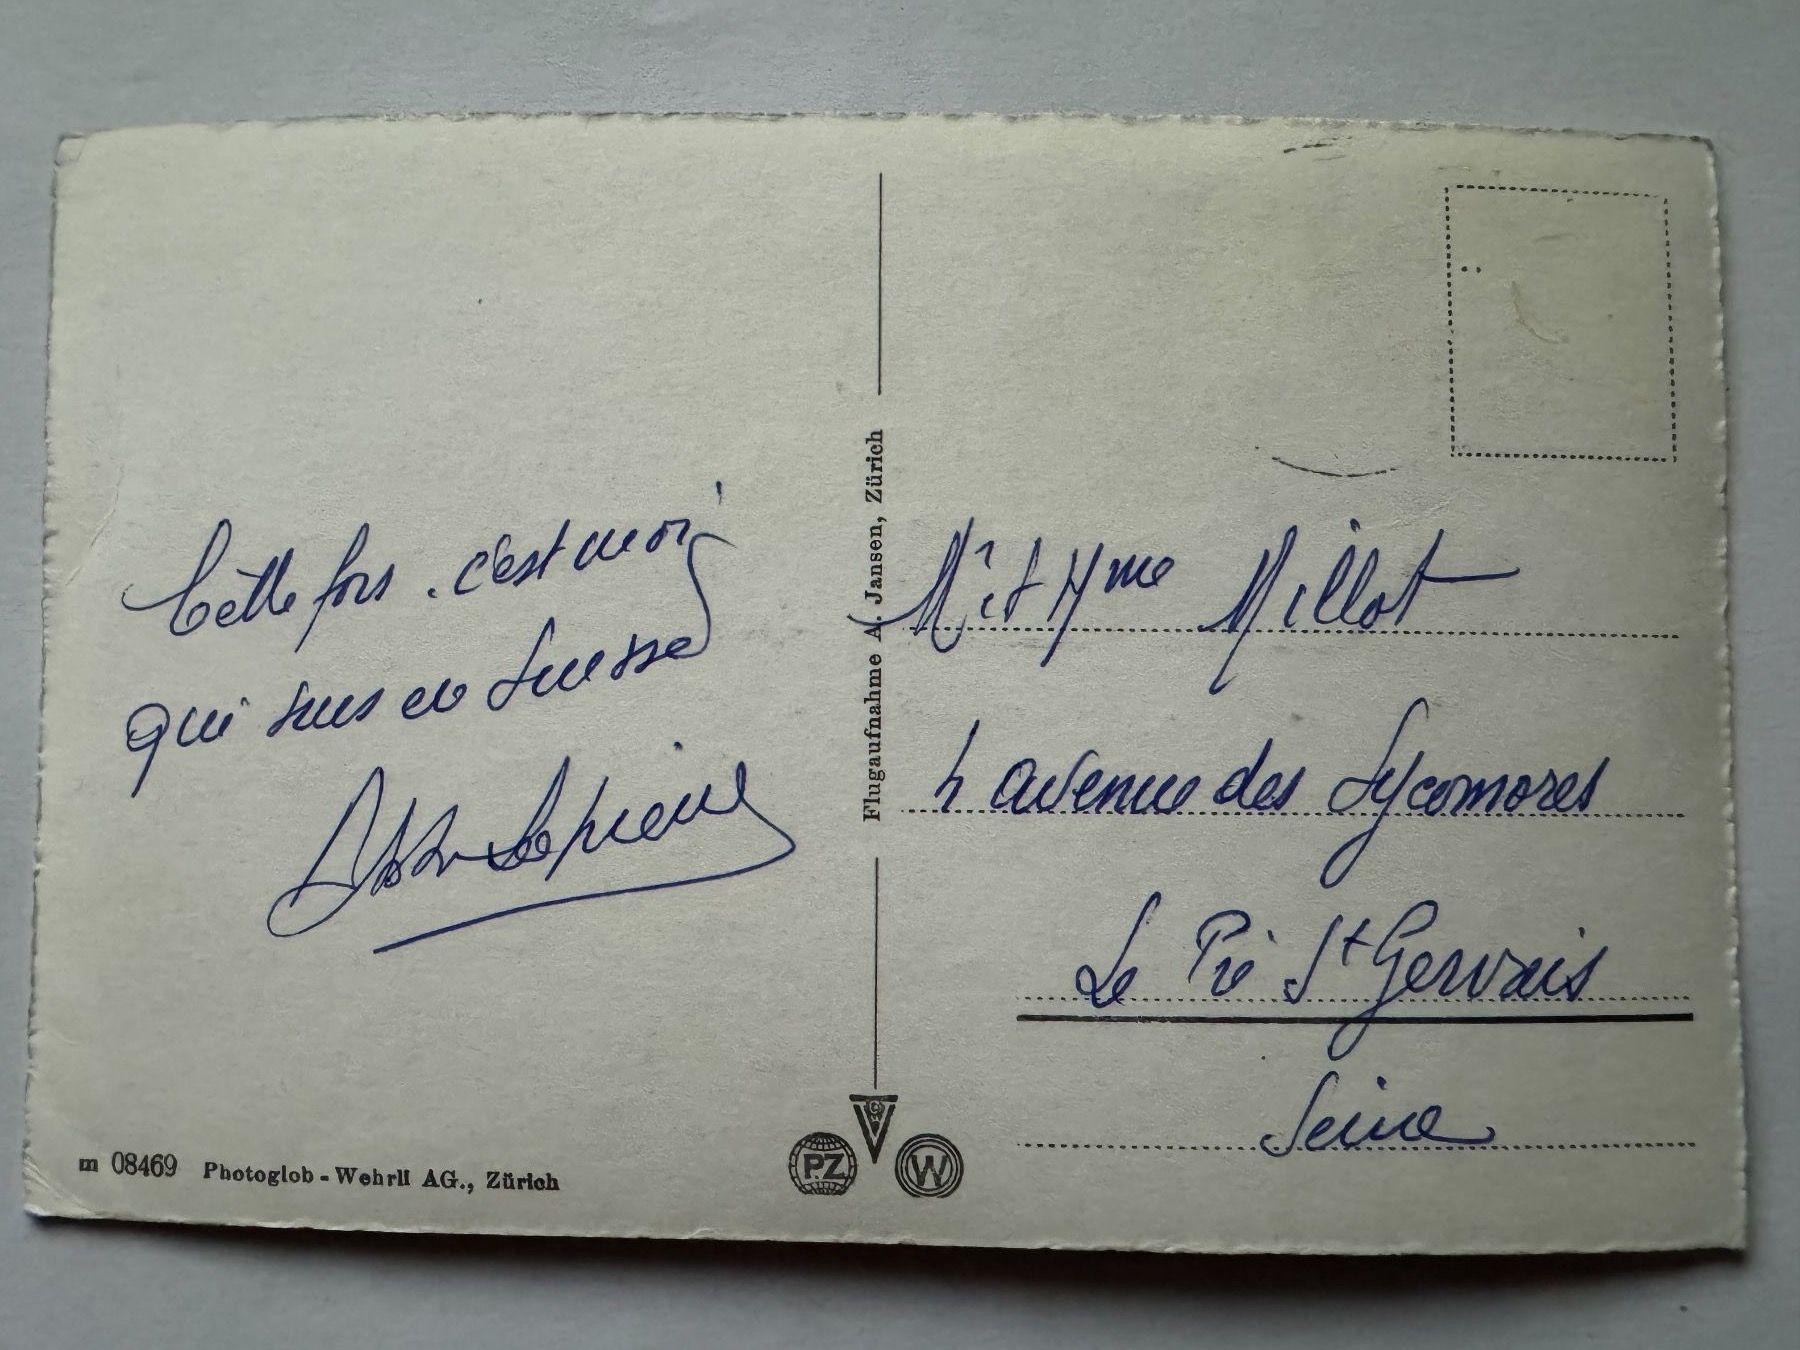 Cette fois, c'est moi
qui suis en Suisse
Flugaufnahme A. Jansen, Zürich
Mr et Mme Millot
4 avenue des Sycomores
Le Pré St Gervais
Seine
m 08469 Photoglob-Wehrli AG., Zürich
PZ
W